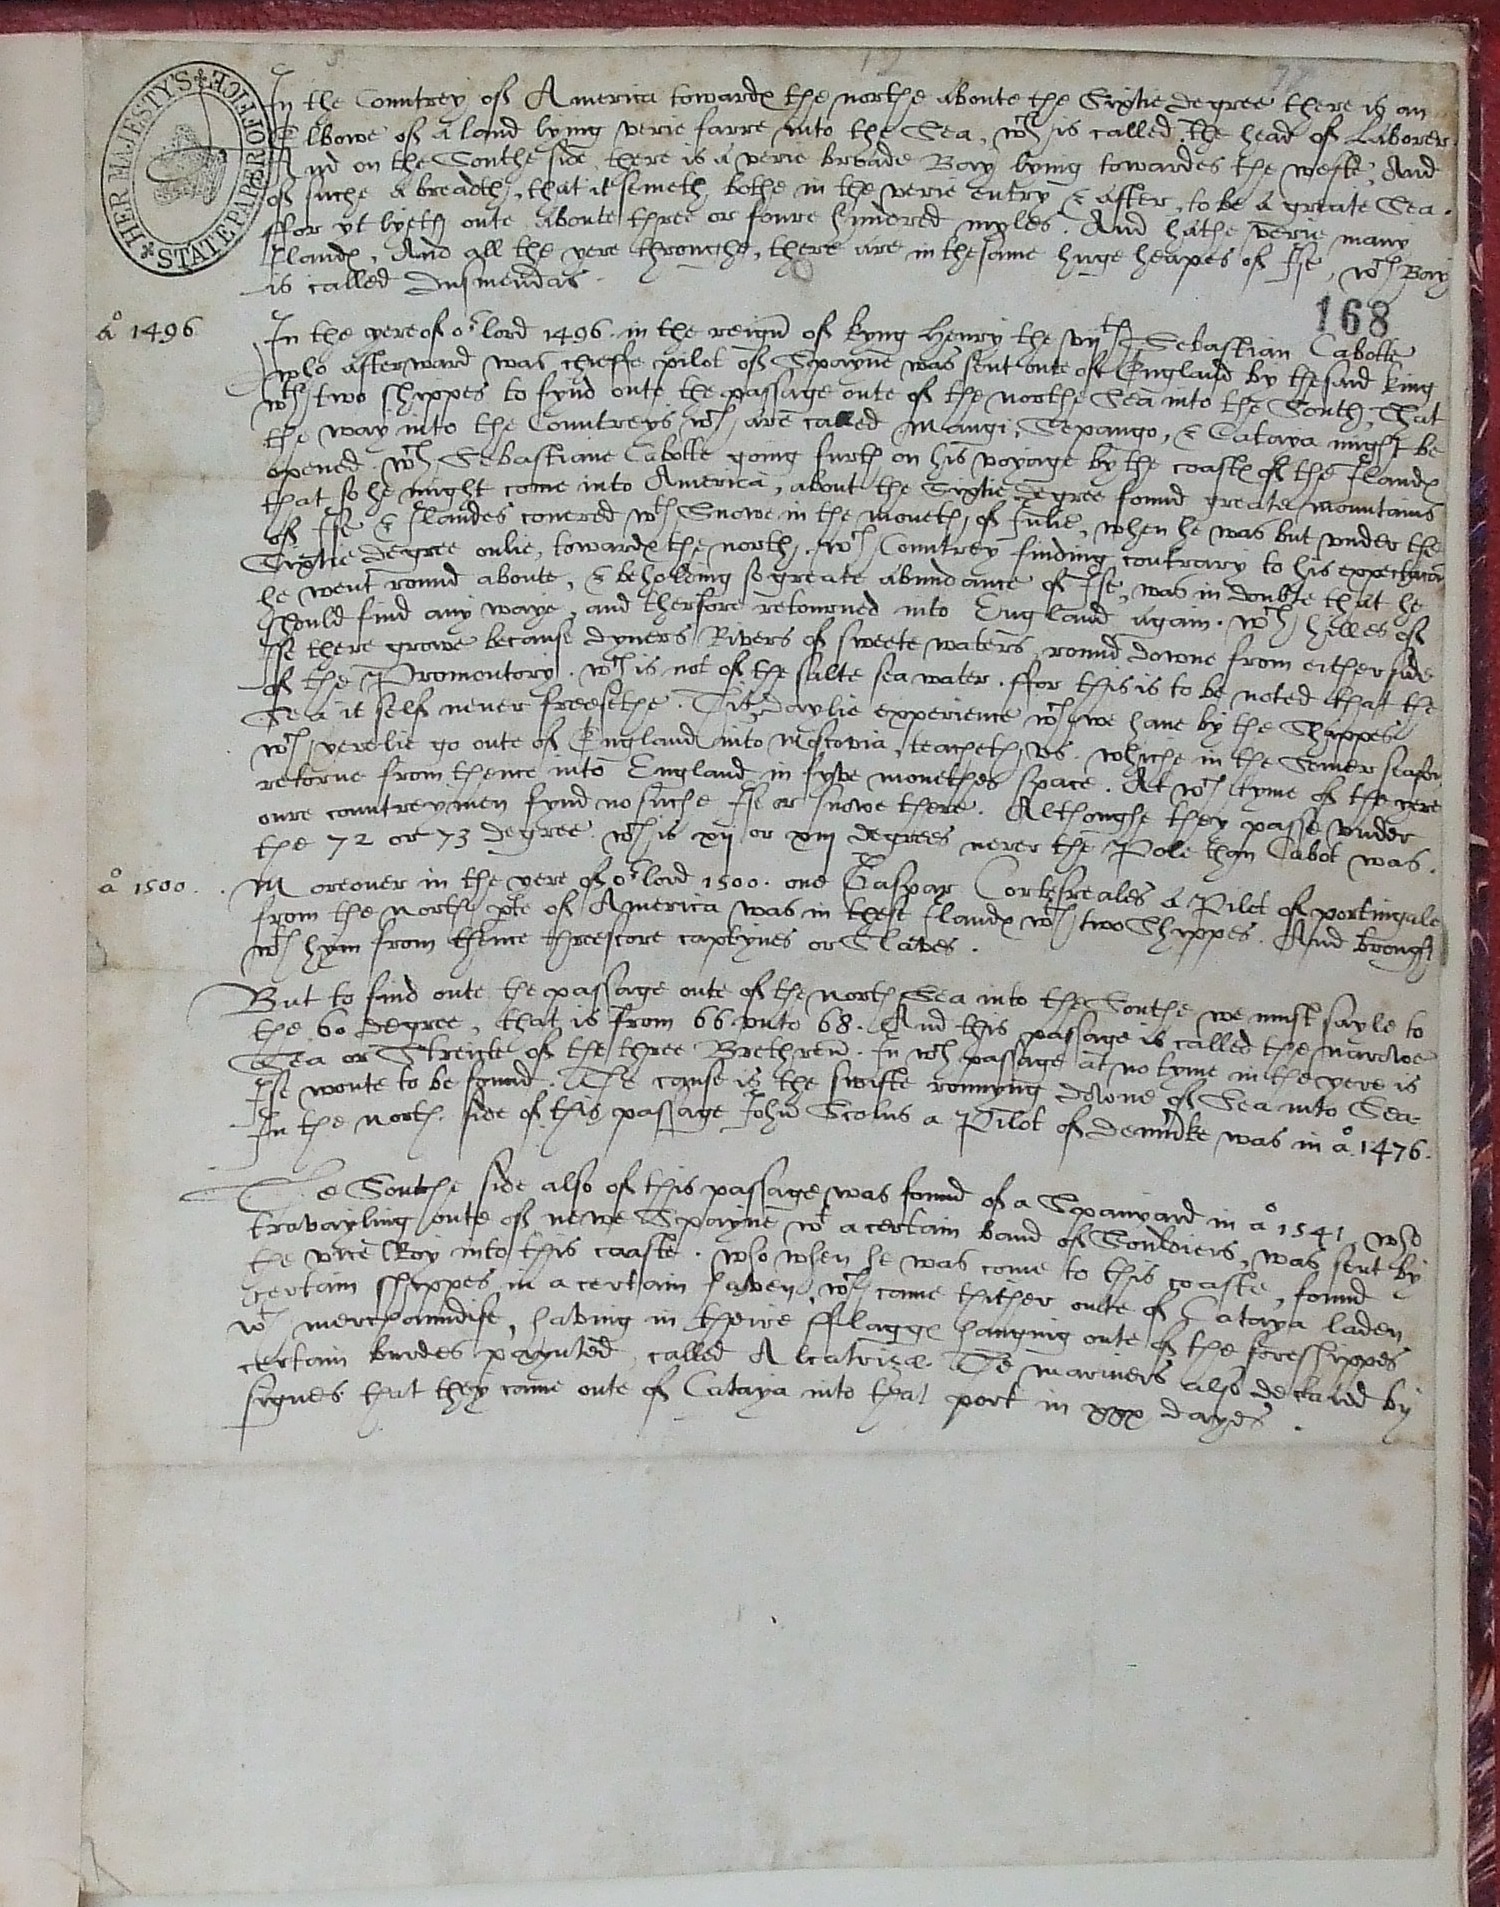 HER MAJESTY'S STATE PAPER OFFICE
In the Countrey of America towardes the northe aboute the Sixtie degree there is an
Elbowe of a land lying verie farre into the Sea, wch is called the head of Laborer.
And on the Southe side there is a verie broade Bay lying towardes the weste, And
of suche a breadth, that it semeth bothe in the verie entry & after, to be a greate Sea.
ffor yt lyeth oute aboute three or foure hundered myles. And hathe verie many
Ilandes, And all the yere throughe, there are in the same huge heapes of Ise, wch Bay
is called Dusmendas.
168
ao 1496
In the yere of or lord 1496. in the reign of kyng Henry the vijth Sebastian Cabotte
who afterward was cheffe pilot of Spayne was sent oute of England by the said king
wth two shyppes to fynd oute the passage oute of the northe Sea into the South, That
the way into the Countreys wch are called Mangi, Sepango, & Cataya might be
opened. wch Sebastiane Cabotte going furth on his voyage by the coastes of the Ilandes
that so he might come into America, about the Sixtie degree found greate mountains
of Ise & Ilandes covered wth Snowe in the moneth of Julie, when he was but vnder the
Sixtie degree onlie, towardes the north. wch Countrey finding contrary to his expectacion
he went round aboute, & beholding so greate abundance of Ise, was in doubte that he
should find any waye, and therfore retourned into England again. wch hilles of
Ise there growe because dyuers Rivers of sweete waters round downe from either side
of the Promontory. wch is not of the salte sea water. ffor this is to be noted that the
Sea it self never freesethe. This daylie experience wch we haue by the Shippes
wch yerelie go oute of England into Moscovia, teacheth vs. whiche in the Somer season
retorne from thence into England in fyve monethes space. At wch tyme of the yere
oure countreymen fynd no suche Ise or snowe there. Althoughe they passe vnder
the 72 or 73 degree. wch is xij or xiij degrees nerer the Pole then Cabot was.
ao 1500.
Moreover in the yere of or lord 1500. one Gaspar Cortesreales a Pilot of portingale
from the north pte of America was in thest Ilandes wth two Shyppes. And brought
wth hym from thence threescore captyves or Slaves.
But to find oute the passage oute of the north Sea into the Southe we must sayle to
the 60 degree, that is from 66 vnto 68. And this passage is called the narowe
Sea or Streicte of the three Brethren. In wch passage at no tyme in the yere is
Ise wonte to be found. The cause is the swifte ronnyng downe of Sea into Sea.
In the north side of this passage John Scolus a Pilot of denmarke was in ao. 1476.
The Southe side also of this passage was found of a Spanyard in ao 1541, who
travayling oute of newe Spayne wt a certain band of Souldiers, was sent by
the vice Roy into this coaste. who when he was come to this coaste, found
certain shyppes in a certain haven, wch came thither oute of Cataya laden
wth merchaundise, having in theire fflagges hanging oute of the foreshippes
certain burdes paynted, called Alcatrizæ. The mariners also declared by
signes that they came oute of Cataya into that port in xxx dayes.